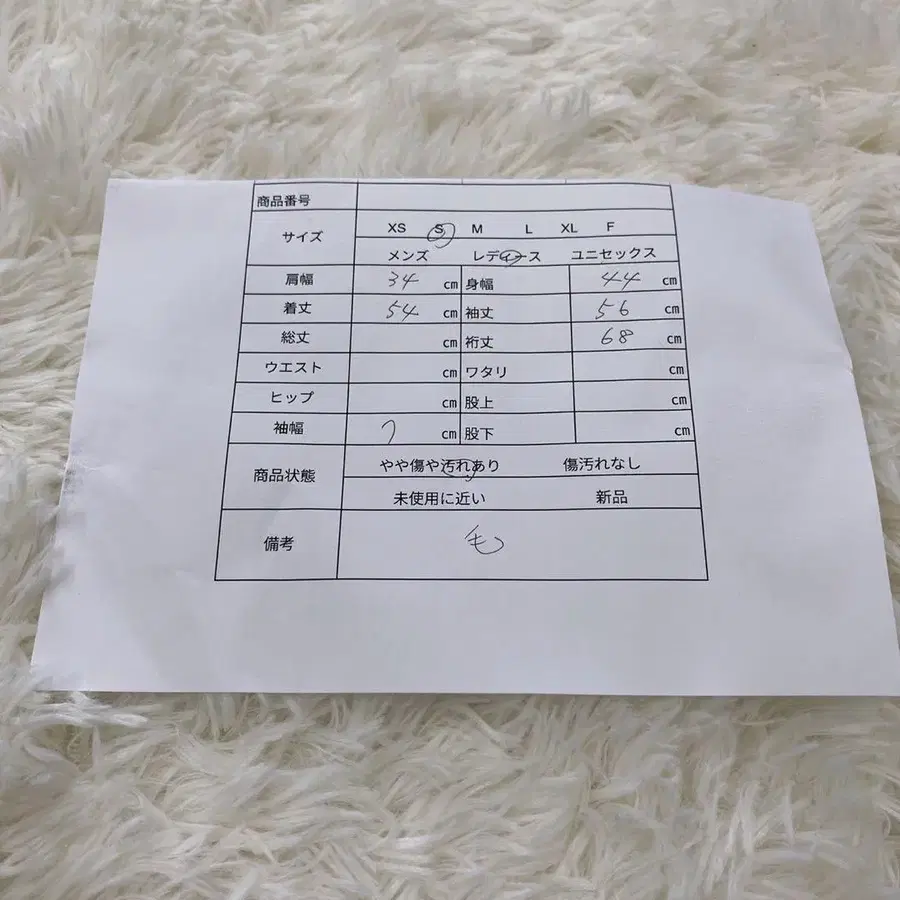 商品番号
サイズ XS S M L XL F
メンズ レディース ユニセックス
肩幅 34 cm 身幅 44 cm
着丈 54 cm 袖丈 56 cm
総丈 cm 裄丈 68 cm
ウエスト cm ワタリ cm
ヒップ cm 股上 cm
袖幅 7 cm 股下 cm
商品状態 やや傷や汚れあり 傷汚れなし
未使用に近い 新品
備考 毛